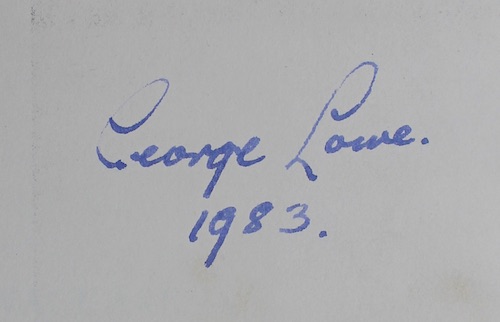 George Lowe.
1983.